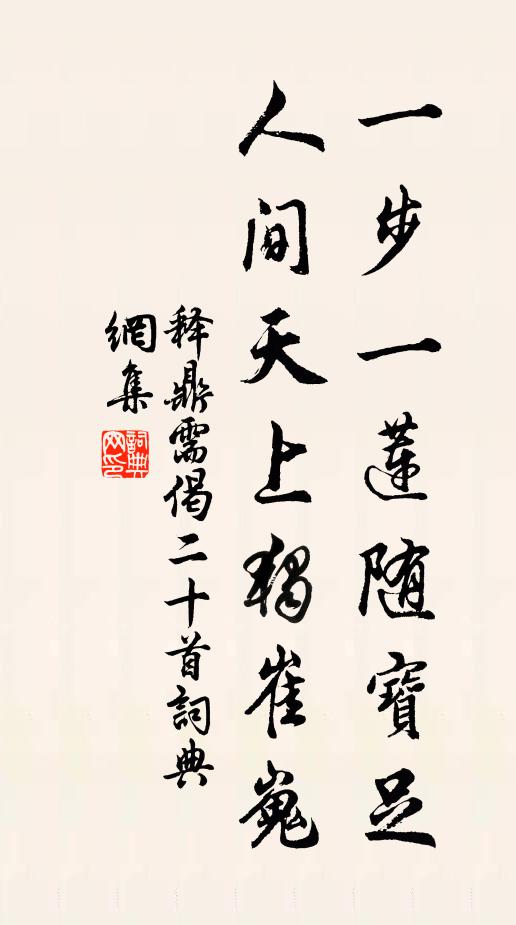 一步一蓮随寶足
人间天上獨崔嵬
释鼎需偈二十首詞典
網集
詞典
网印